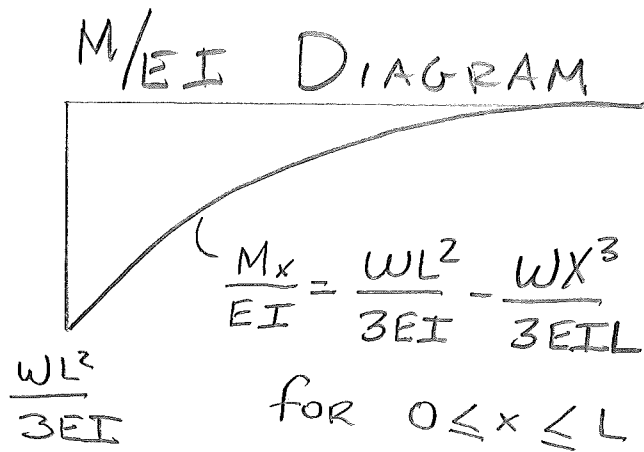 M/EI DIAGRAM
Mx/EI = WL²/3EI - WX³/3EIL
WL²/3EI
for 0 ≤ x ≤ L